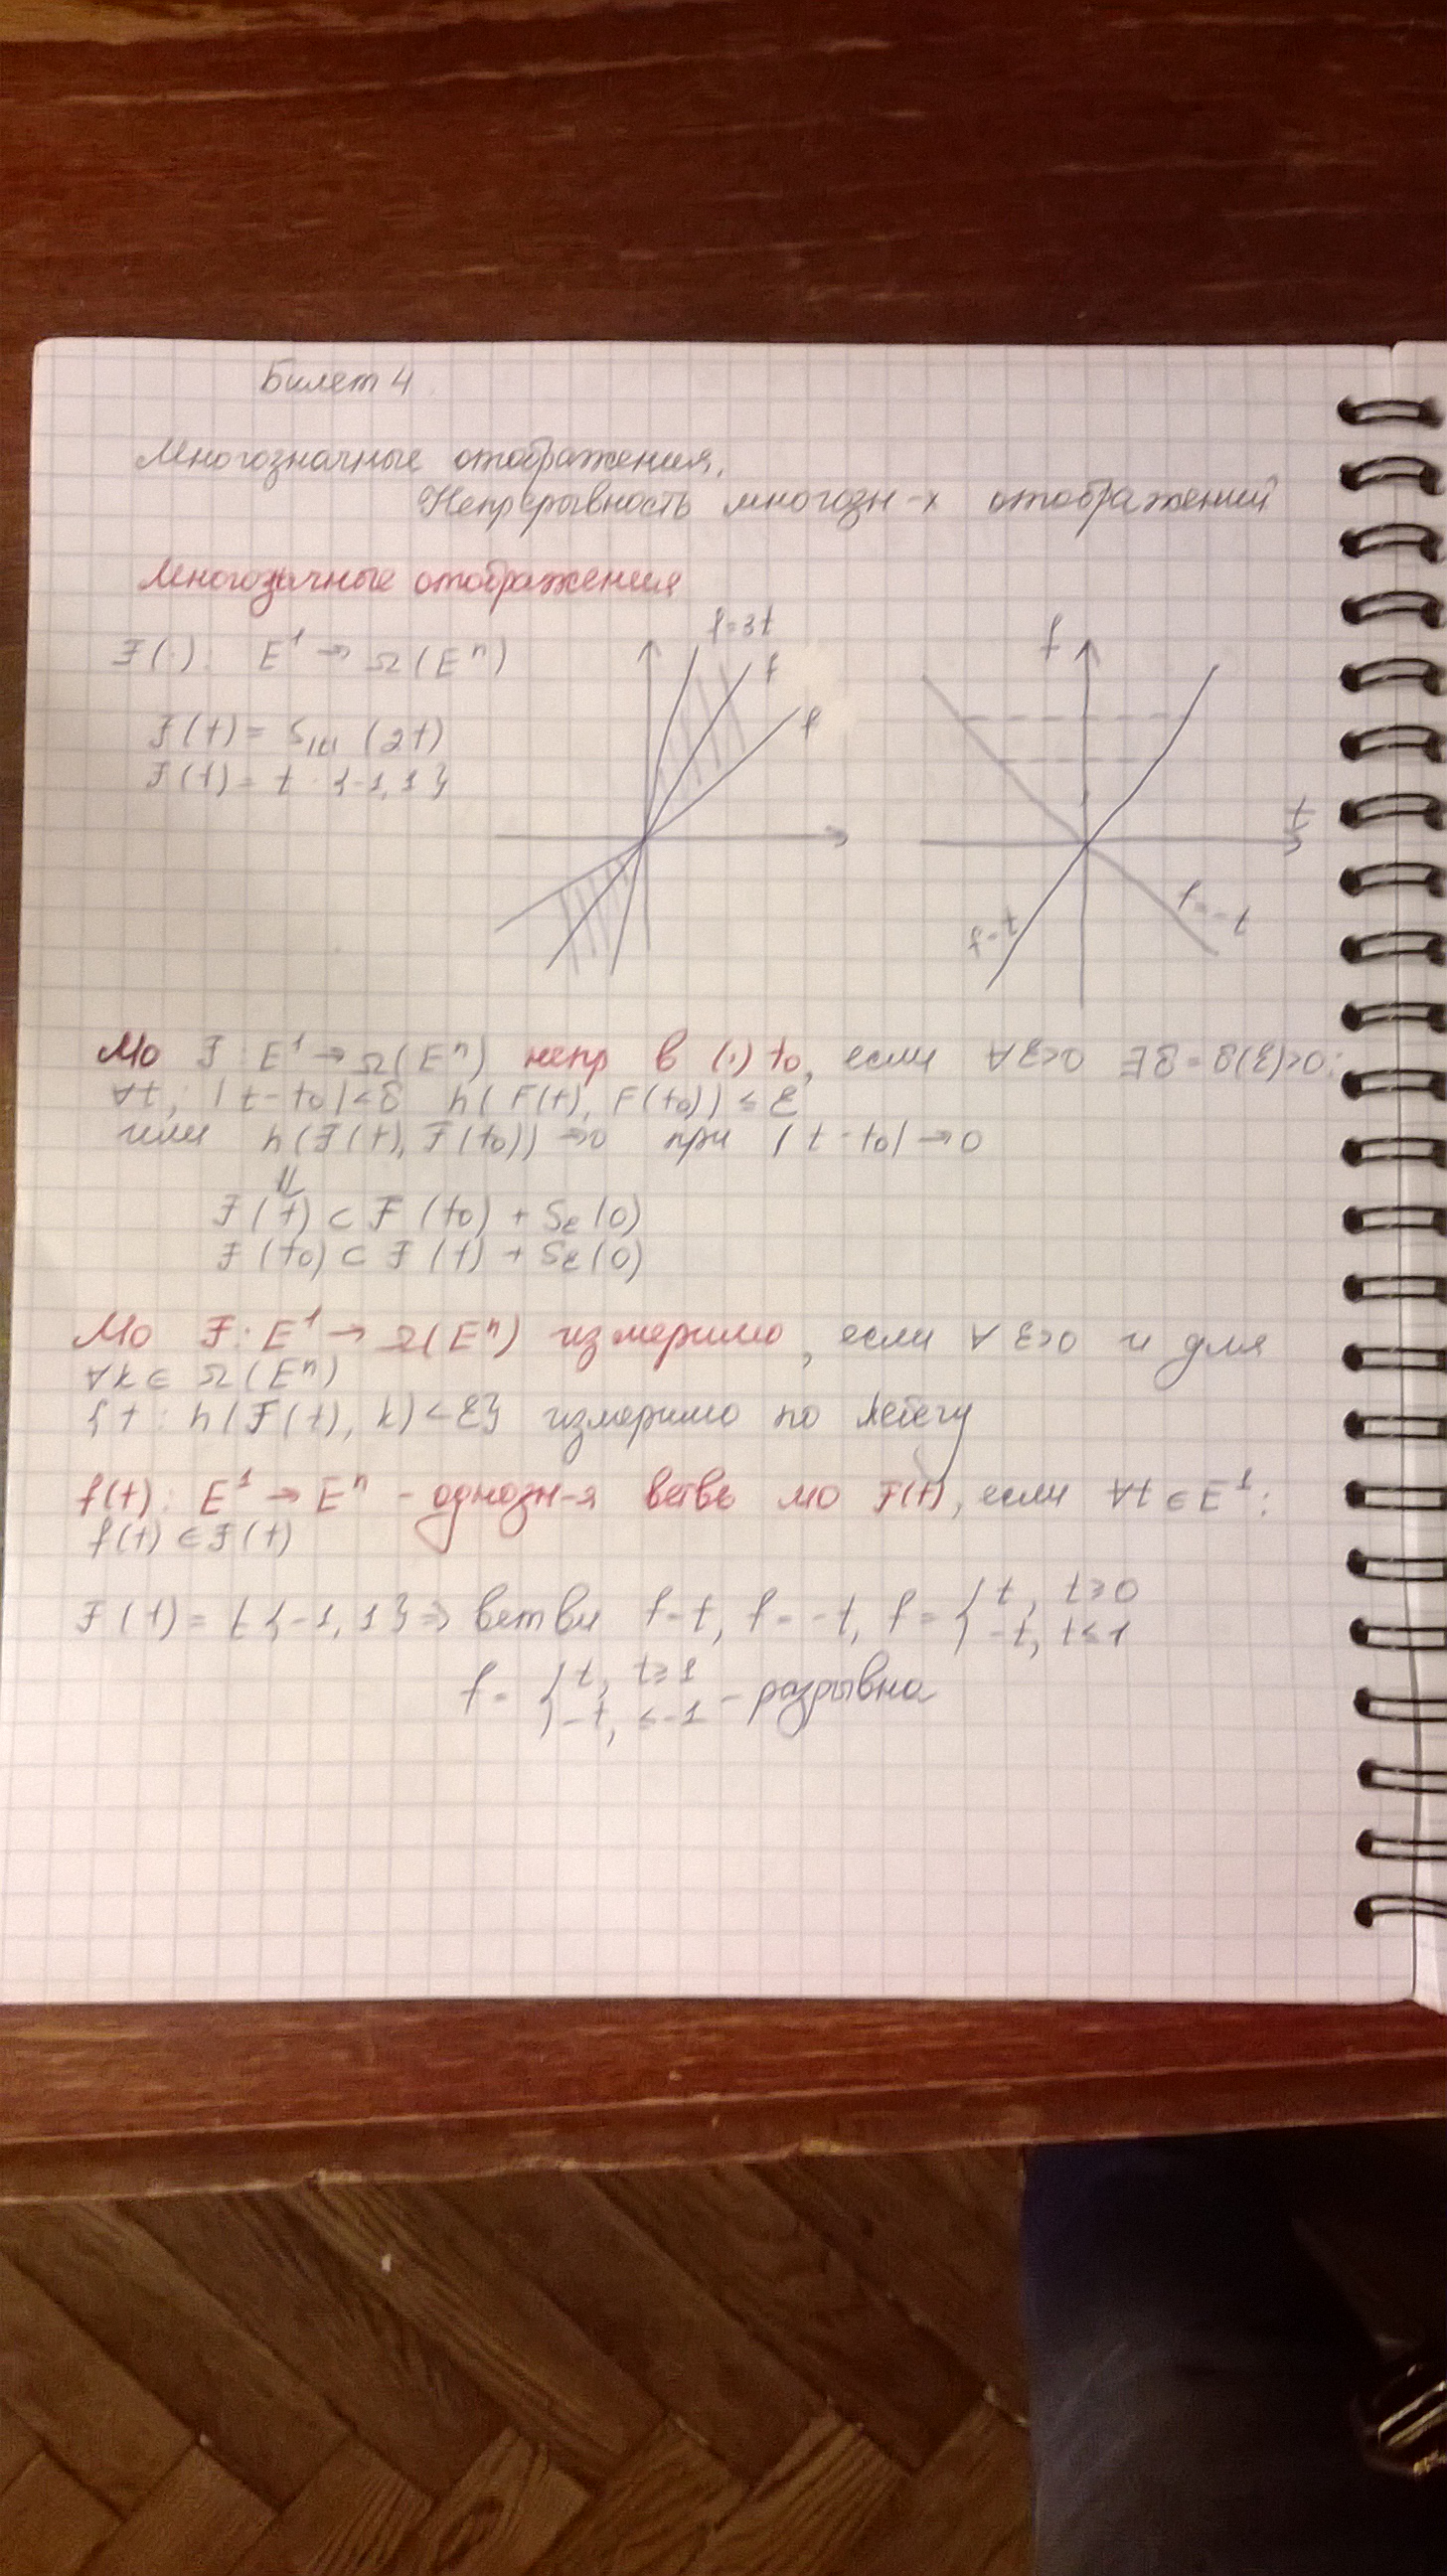 Билет 4
Многозначные отображения.
Непрерывность многозн-х отображений
Многозначные отображения
F(·): E¹ → Ω(Eⁿ)
F(t) = S|t| (2t)
F(t) = t · {-1, 1}
f=3t
f
f
f
t
f=t
f=-t
МО F: E¹ → Ω(Eⁿ) непр в (·) t₀, если ∀ε>0 ∃δ=δ(ε)>0:
∀t: |t-t₀|<δ h(F(t), F(t₀)) ≤ ε
или h(F(t), F(t₀)) → 0 при |t-t₀| → 0
⇓
F(t) ⊂ F(t₀) + Sε(0)
F(t₀) ⊂ F(t) + Sε(0)
МО F: E¹ → Ω(Eⁿ) измеримо, если ∀ ε>0 и для
∀K ∈ Ω(Eⁿ)
{t : h(F(t), K) < ε} измеримо по Лебегу
f(t): E¹ → Eⁿ - однозн-я ветвь МО F(t), если ∀t ∈ E¹:
f(t) ∈ F(t)
F(t) = t{-1, 1} ⇒ ветви f=t, f=-t, f= { t, t≥0
{ -t, t≤1
f= { t, t≥1
{ -t, <-1 - разрывна